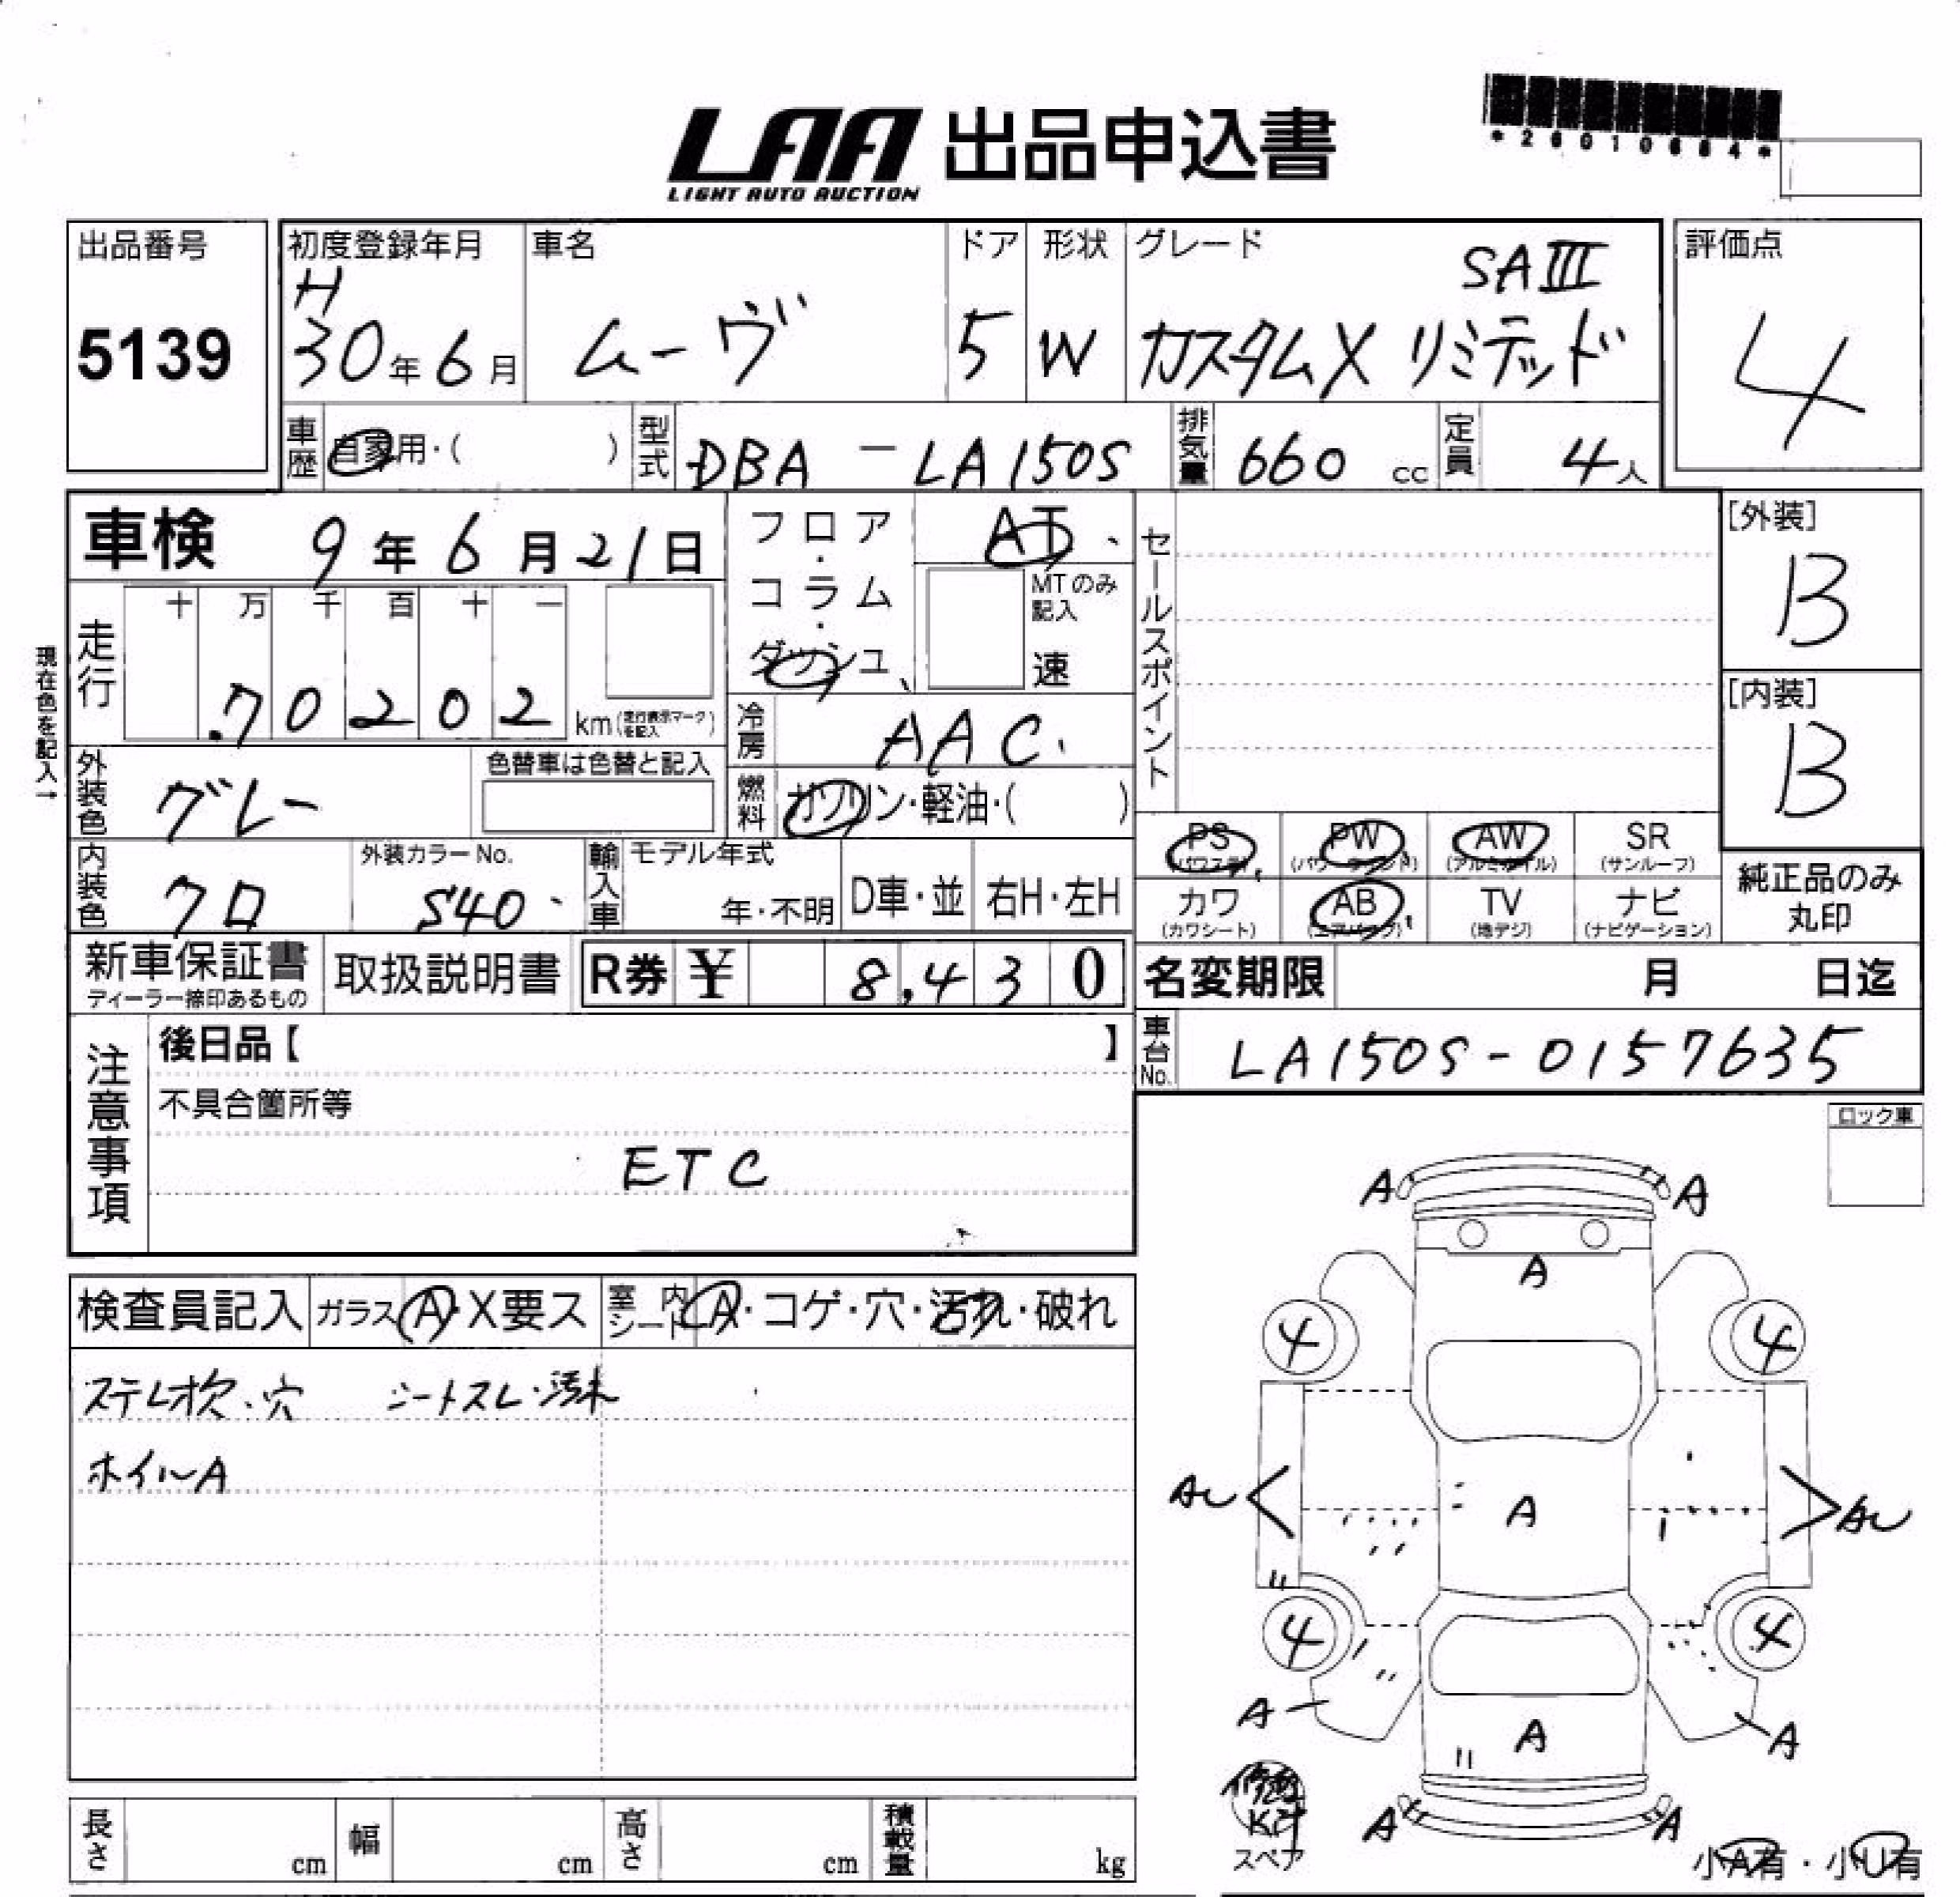 LAA 出品申込書
LIGHT AUTO AUCTION
*26010664*
出品番号
5139
初度登録年月
H
30年6月
車名
ムーヴ
ドア
5
形状
W
グレード
SAⅢ
カスタムX リミテッド
評価点
4
車歴
自家用・( )
型式
DBA-LA150S
排気量
660 cc
定員
4人
車検 9年6月21日
フロア・コラム・ダッシュ
AT
MTのみ記入
速
セールスポイント
[外装]
B
[内装]
B
現在色を記入→
走行
十 万 千 百 十 一
70202 km (走行表示マークを記入)
冷房
AAC
外装色
グレー
色替車は色替と記入
燃料
ガソリン・軽油・( )
PS (パワステ)
PW (パワーウィンド)
AW (アルミホイル)
SR (サンルーフ)
カワ (カワシート)
AB (エアバック)
TV (地デジ)
ナビ (ナビゲーション)
純正品のみ丸印
内装色
クロ
外装カラーNo.
S40
輸入車
モデル年式
年・不明
D車・並
右H・左H
新車保証書
ディーラー捺印あるもの
取扱説明書
R券 ¥ 8,430
名変期限 月 日迄
車台No.
LA150S-0157635
注意事項
後日品【 】
不具合箇所等
ETC
ロック車
検査員記入
ガラス A・X要ス
室内シート A・コゲ・穴・汚れ・破れ
ステレオ欠・穴 シートスレ・汚れ
ホイルA
A A
A
4 4
AU A AU
4 4
A A
A
A A
スペア
小A有・小U有
長さ cm
幅 cm
高さ cm
積載量 kg